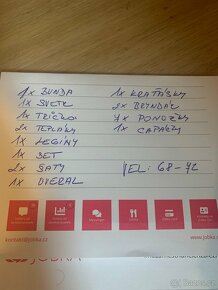 1x BUNDA
1x SVETR
1x TRIČKO
2x TEPLÁKY
1x LEGÍNY
1x SET
2x ŠATY
1x OVERAL
1x KRAŤÁSKY
2x BRYNDÁK
7x PONOŽKY
1x CAPÁČKY
VEL: 68-74
Messenger
kontakt@jobka.cz
www.jobk
JOBKA